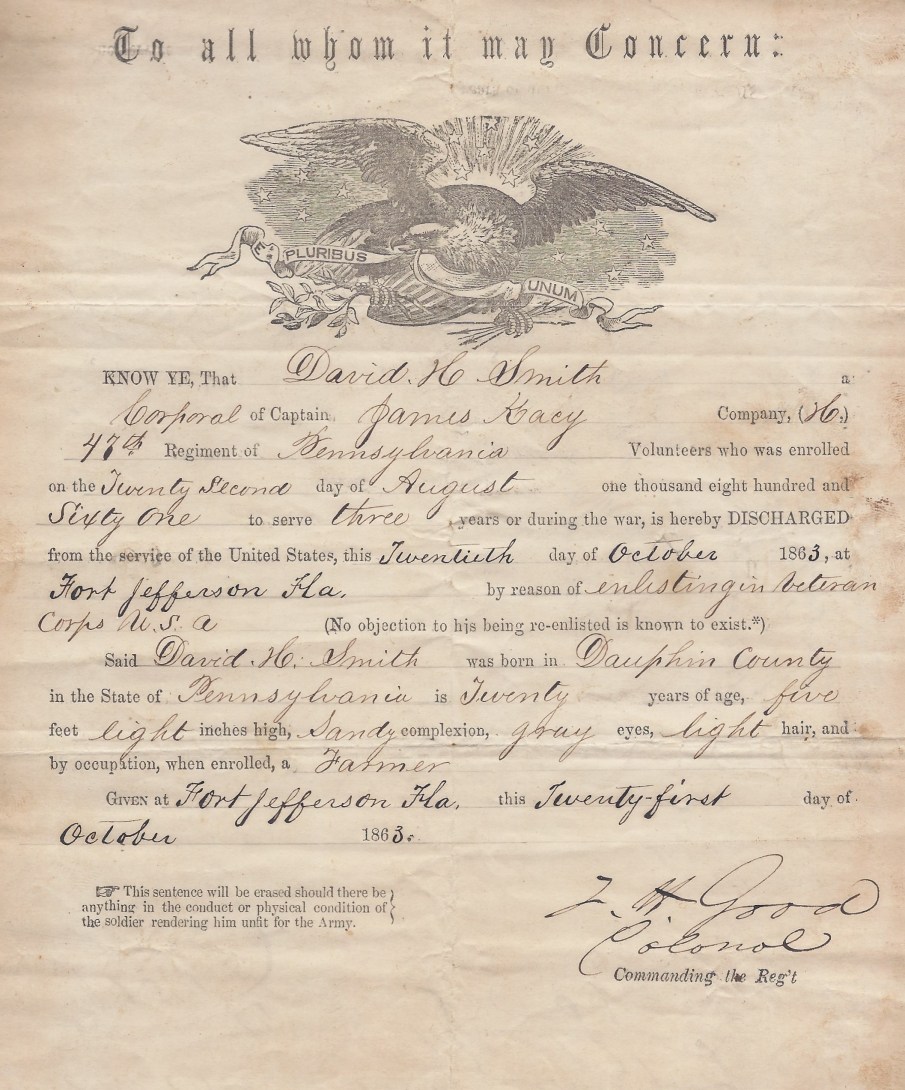 To all whom it may Concern:
E PLURIBUS UNUM
KNOW YE, That David. H. Smith a
Corporal of Captain James Kacy Company, (H,)
47th Regiment of Pennsylvania Volunteers who was enrolled
on the Twenty Second day of August one thousand eight hundred and
Sixty One to serve three years or during the war, is hereby DISCHARGED
from the service of the United States, this Twentieth day of October 1863, at
Fort Jefferson Fla. by reason of enlisting in Veteran
Corps U.S. a (No objection to his being re-enlisted is known to exist.*)
Said David. H. Smith was born in Dauphin County
in the State of Pennsylvania is Twenty years of age, five
feet eight inches high, Sandy complexion, gray eyes, light hair, and
by occupation, when enrolled, a Farmer
GIVEN at Fort Jefferson Fla. this Twenty-first day of
October 1863.
☞ This sentence will be erased should there be
anything in the conduct or physical condition of
the soldier rendering him unfit for the Army.
T. H. Good
Colonel
Commanding the Reg't